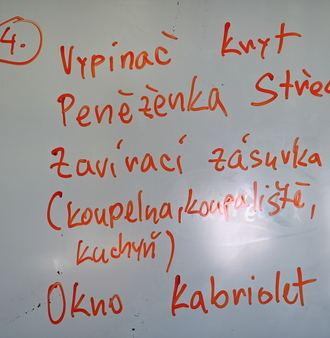 4. Vypínač kryt
Peněženka Střec
Zavírací zásuvka
(koupelna, koupaliště,
kuchyň)
Okno kabriolet